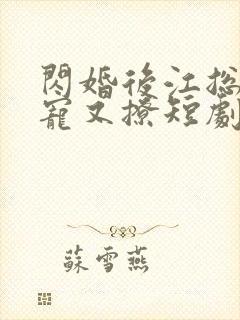 閃婚後江総
寵又撩短劇
蘇雪燕